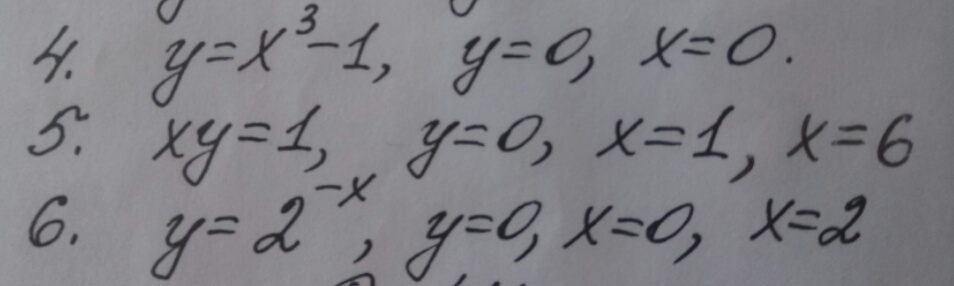 4. y=x³-1, y=0, x=0.
5. xy=1, y=0, x=1, x=6
6. y=2⁻ˣ, y=0, x=0, x=2